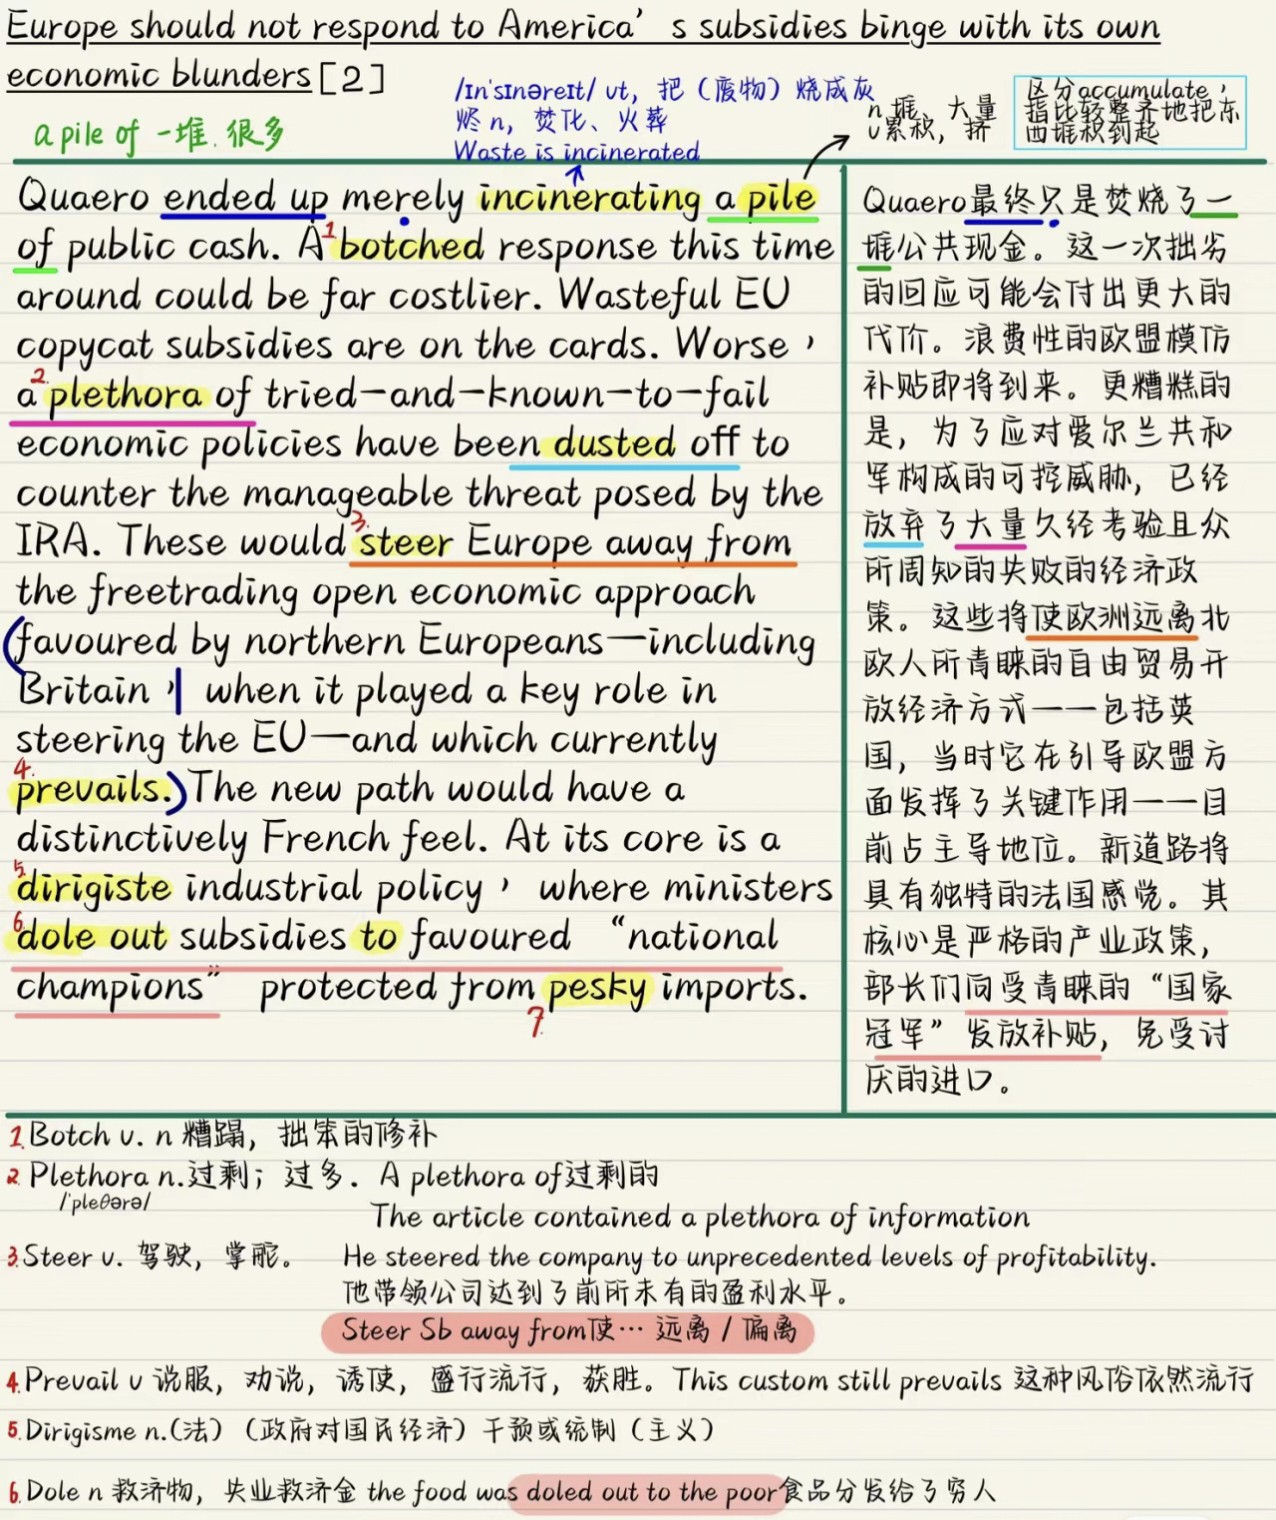 Europe should not respond to America's subsidies binge with its own
economic blunders[2]
/ɪn'sɪnəreɪt/ vt，把（废物）烧成灰
烬 n，焚化、火葬
Waste is incinerated
a pile of 一堆.很多
n 堆，大量
v累积，挤
区分accumulate，
指比较整齐地把东
西堆积到起
Quaero ended up merely incinerating a pile
of public cash. A 1 botched response this time
around could be far costlier. Wasteful EU
copycat subsidies are on the cards. Worse，
a 2. plethora of tried—and—known—to—fail
economic policies have been dusted off to
counter the manageable threat posed by the
IRA. These would 3. steer Europe away from
the freetrading open economic approach
(favoured by northern Europeans—including
Britain，| when it played a key role in
steering the EU—and which currently
4. prevails.) The new path would have a
distinctively French feel. At its core is a
5. dirigiste industrial policy， where ministers
6. dole out subsidies to favoured “national
champions” protected from pesky imports.
7.
Quaero最终只是焚烧了一
堆公共现金。这一次拙劣
的回应可能会付出更大的
代价。浪费性的欧盟模仿
补贴即将到来。更糟糕的
是，为了应对爱尔兰共和
军构成的可控威胁，已经
放弃了大量久经考验且众
所周知的失败的经济政
策。这些将使欧洲远离北
欧人所青睐的自由贸易开
放经济方式——包括英
国，当时它在引导欧盟方
面发挥了关键作用——目
前占主导地位。新道路将
具有独特的法国感觉。其
核心是严格的产业政策，
部长们向受青睐的“国家
冠军”发放补贴，免受讨
厌的进口。
1.Botch v. n 糟蹋，拙笨的修补
2 Plethora n.过剩；过多．A plethora of过剩的
/'pleθərə/
The article contained a plethora of information
3.Steer v. 驾驶，掌舵。 He steered the company to unprecedented levels of profitability.
他带领公司达到了前所未有的盈利水平。
Steer Sb away from使… 远离 / 偏离
4.Prevail v 说服，劝说，诱使，盛行流行，获胜。This custom still prevails 这种风俗依然流行
5.Dirigisme n.(法）（政府对国民经济）干预或统制（主义）
6.Dole n 救济物，失业救济金 the food was doled out to the poor食品分发给了穷人